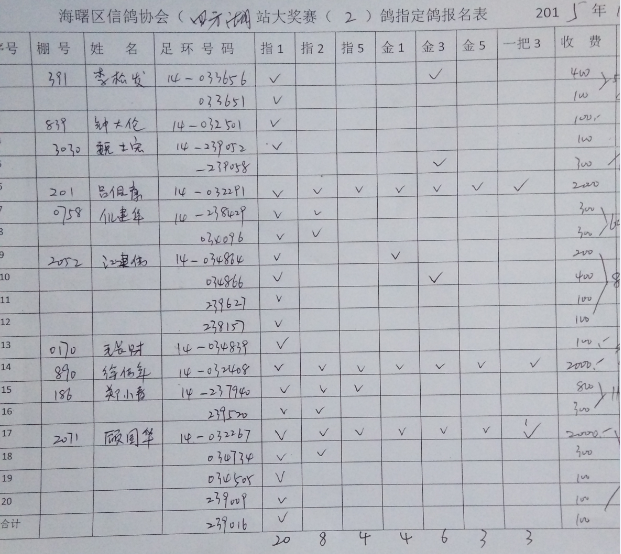 海曙区信鸽协会（四方湖站大奖赛（2）鸽指定鸽报名表 2015年
号 棚号 姓 名 足环号码 指1 指2 指5 金1 金3 金5 一把3 收 费
391 李松发 14-033656 ✓ ✓ 400
033651 ✓ 100
839 钟大伦 14-032501 ✓ 100.-
3030 魏士宏 14-239052 ✓ 100
-239058 ✓ 300
201 14-032291 ✓ ✓ ✓ ✓ ✓ ✓ ✓ 2000
0758 仇建华 14-238429 ✓ ✓ 300
034096 ✓ ✓ 300
9 2052 江惠伟 14-034864 ✓ ✓ 200
10 034866 ✓ ✓ 400
11 239627 ✓ 100
12 239157 ✓ 100
13 0170 14-034839 ✓ 100.-
14 890 14-032408 ✓ ✓ ✓ ✓ ✓ ✓ ✓ 2000.-
15 186 郑小春 14-237940 ✓ ✓ ✓ 800
16 239520 ✓ ✓ 300
17 2071 顾国华 14-032267 ✓ ✓ ✓ ✓ ✓ ✓ ✓ 2000.-
18 034734 ✓ ✓ 300
19 034505 ✓ 100
20 239009 ✓ 100
合计 239016 ✓ 100
20 8 4 4 6 3 3